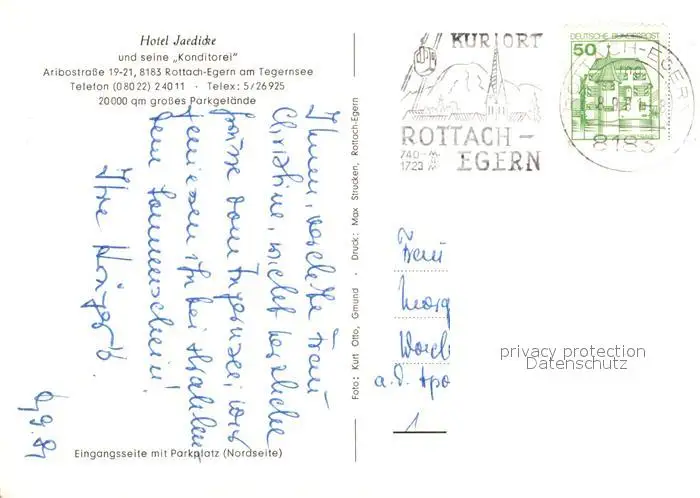 Hotel Jaedicke
und seine „Konditorei"
Aribostraße 19-21, 8183 Rottach-Egern am Tegernsee
Telefon (08022) 24011 · Telex: 5/26925
20000 qm großes Parkgelände
Ihnen, verehrte Frau
Christine, recht herzliche
Grüsse vom Tegernsee; wir
geniessen ihn bei strahlen-
dem Sonnenschein!
Ihre
Eingangsseite mit Parkplatz (Nordseite)
Foto: Kurt Otto, Gmund · Druck: Max Strucken, Rottach-Egern
KURORT
ROTTACH-
740-M
1723 M
EGERN
DEUTSCHE BUNDESPOST
50
ROTTACH-EGERN
8183
Frau
a.d. Apo
1
privacy protection
Datenschutz